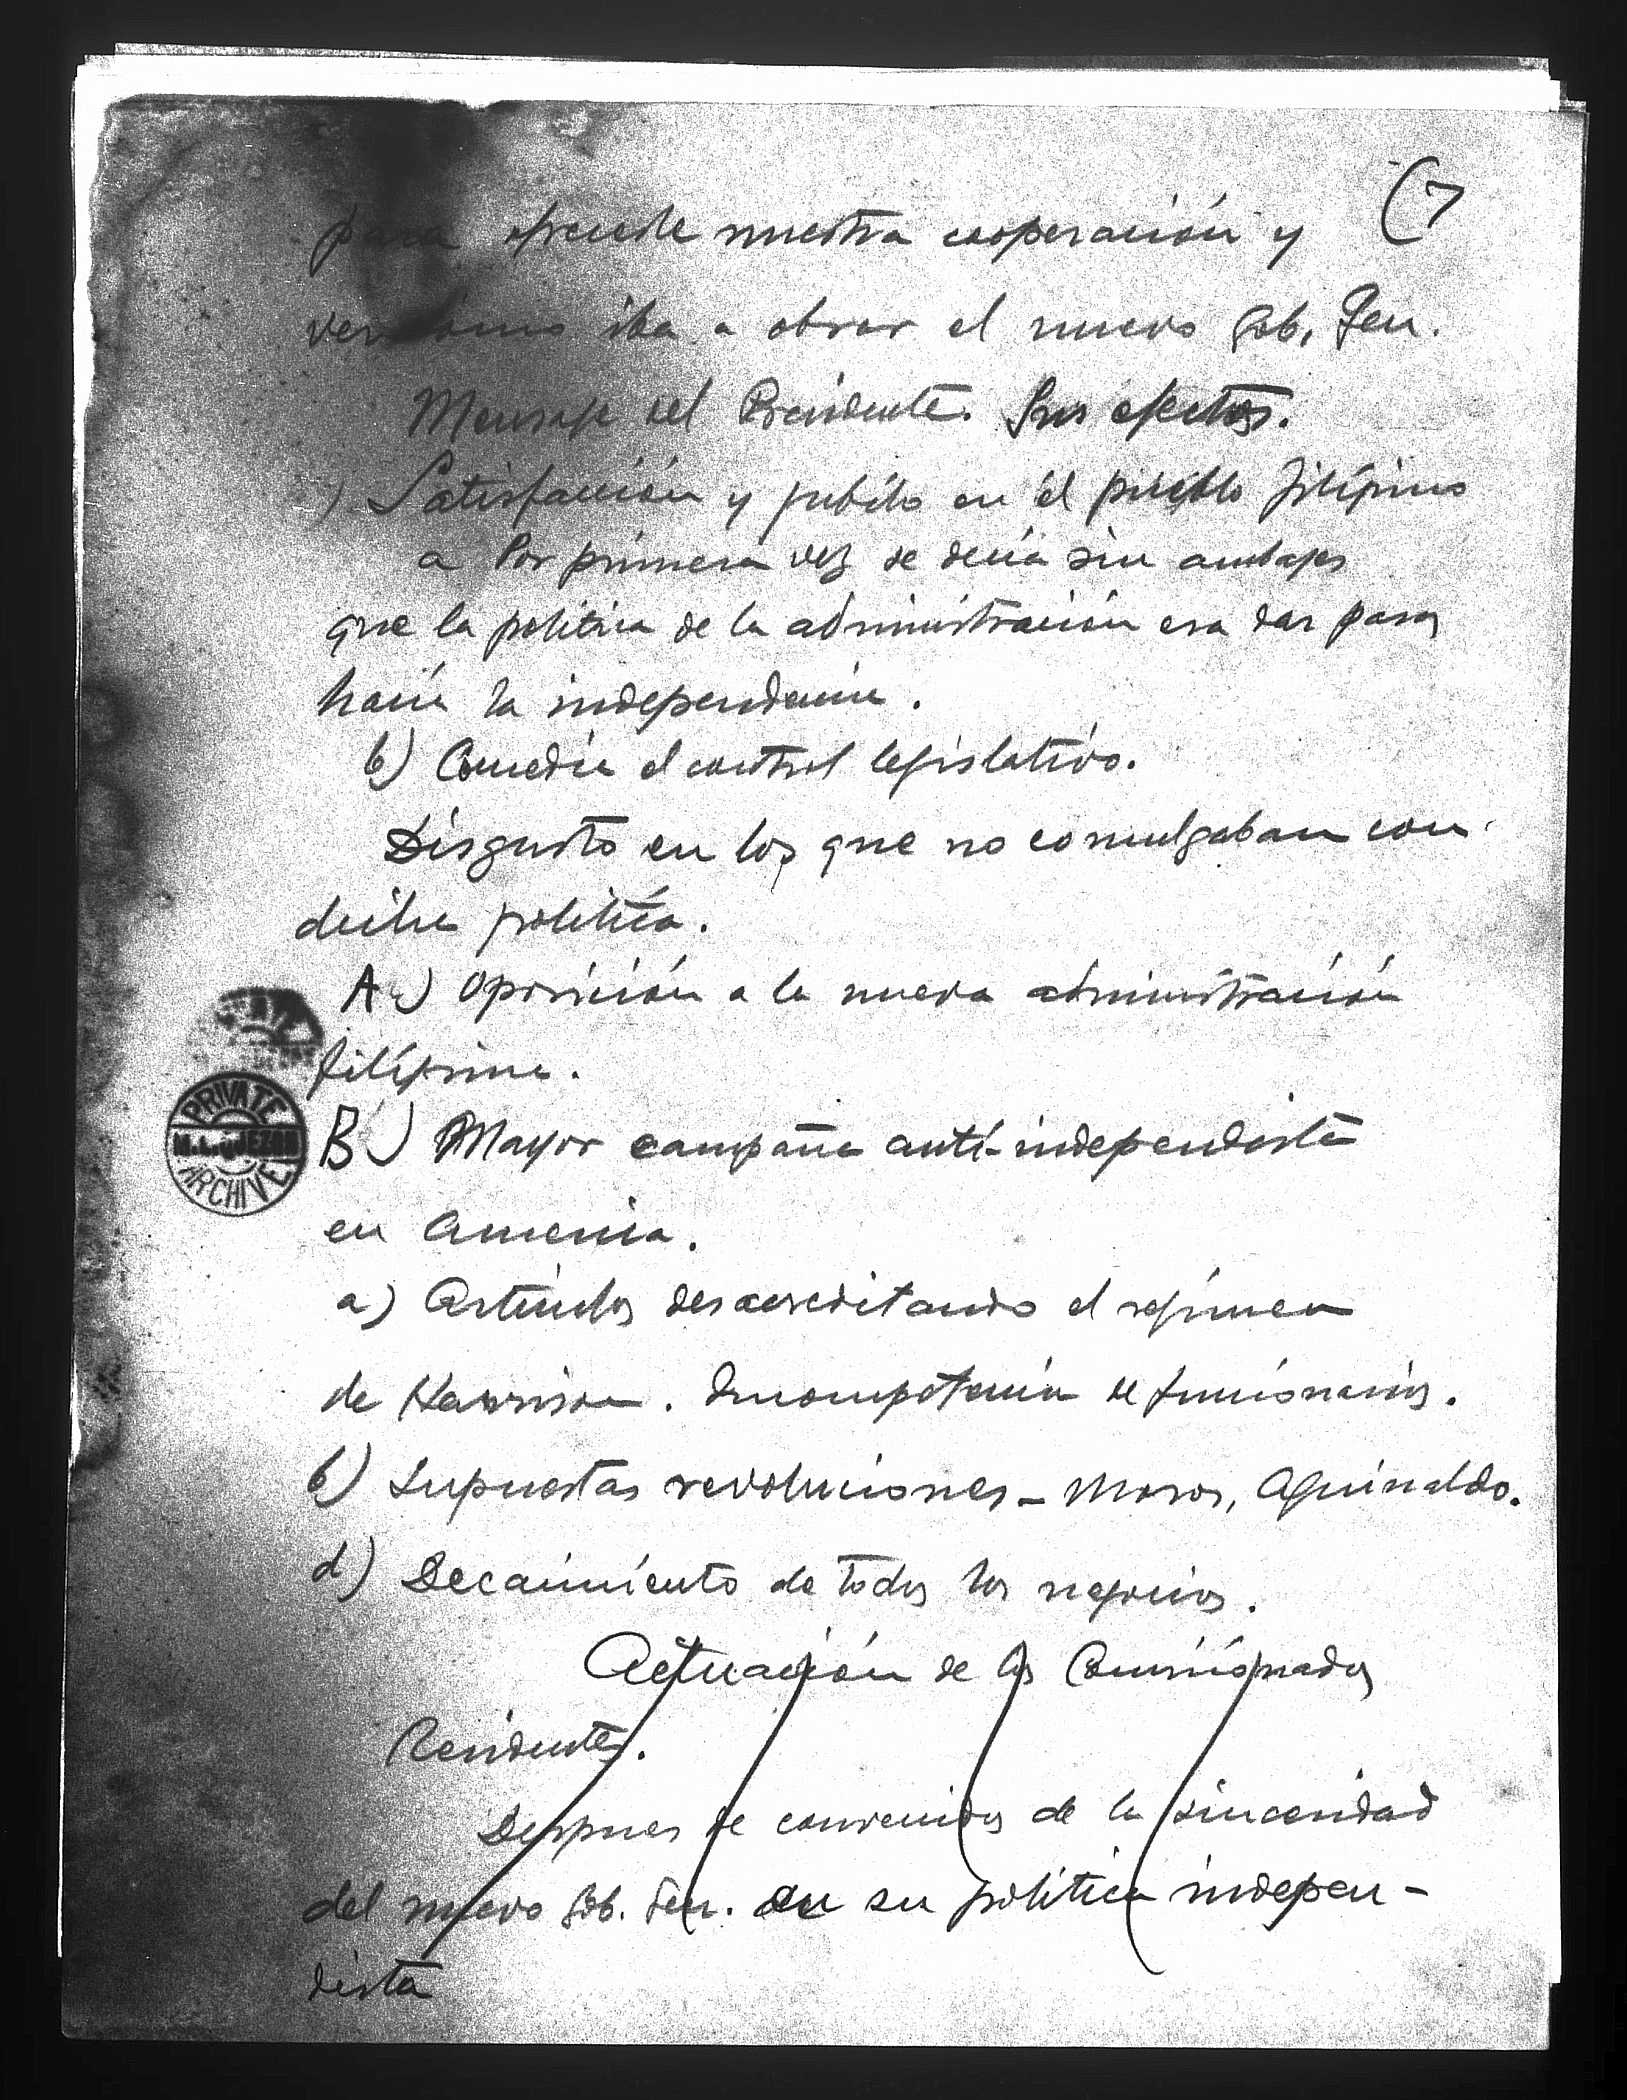 (7
para ofrecerle nuestra cooperación y
ver cómo iba a obrar el nuevo Gob. Gen.
Mensaje del Presidente. Sus efectos.
) Satisfacción y jubilo en el pueblo filipino
a Por primera vez se decia sin ambajes
que la politica de la administración era dar pasos
hacia la independencia.
b) Concedia el control legislativo.
Disgusto en los que no comulgaban con
dicha politica.
A) Oposición a la nueva administración
filipina.
B) Mayor campaña anti-independista
en America.
a) Articulos desacreditando el régimen
de Harrison. Incompetencia de funcionarios.
b) Supuestas revoluciones – Moros, Aguinaldo.
d) Decaimiento de todos los negocios.
Actuación de los Comisionados
Residentes.
Despues de convencidos de la sinceridad
del nuevo Gob. Gen. en su politica indepen-
dista
PRIVATE
M.L. QUEZON
ARCHIVE